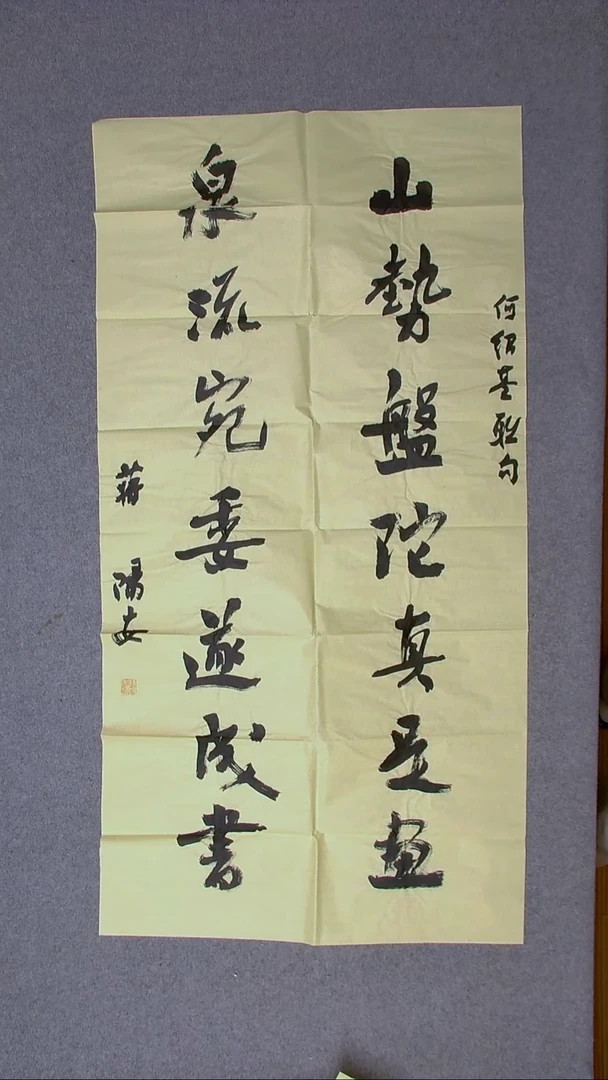 何绍基联句
山勢盤陀真是畫
泉流宛委遂成書
蒋陽安